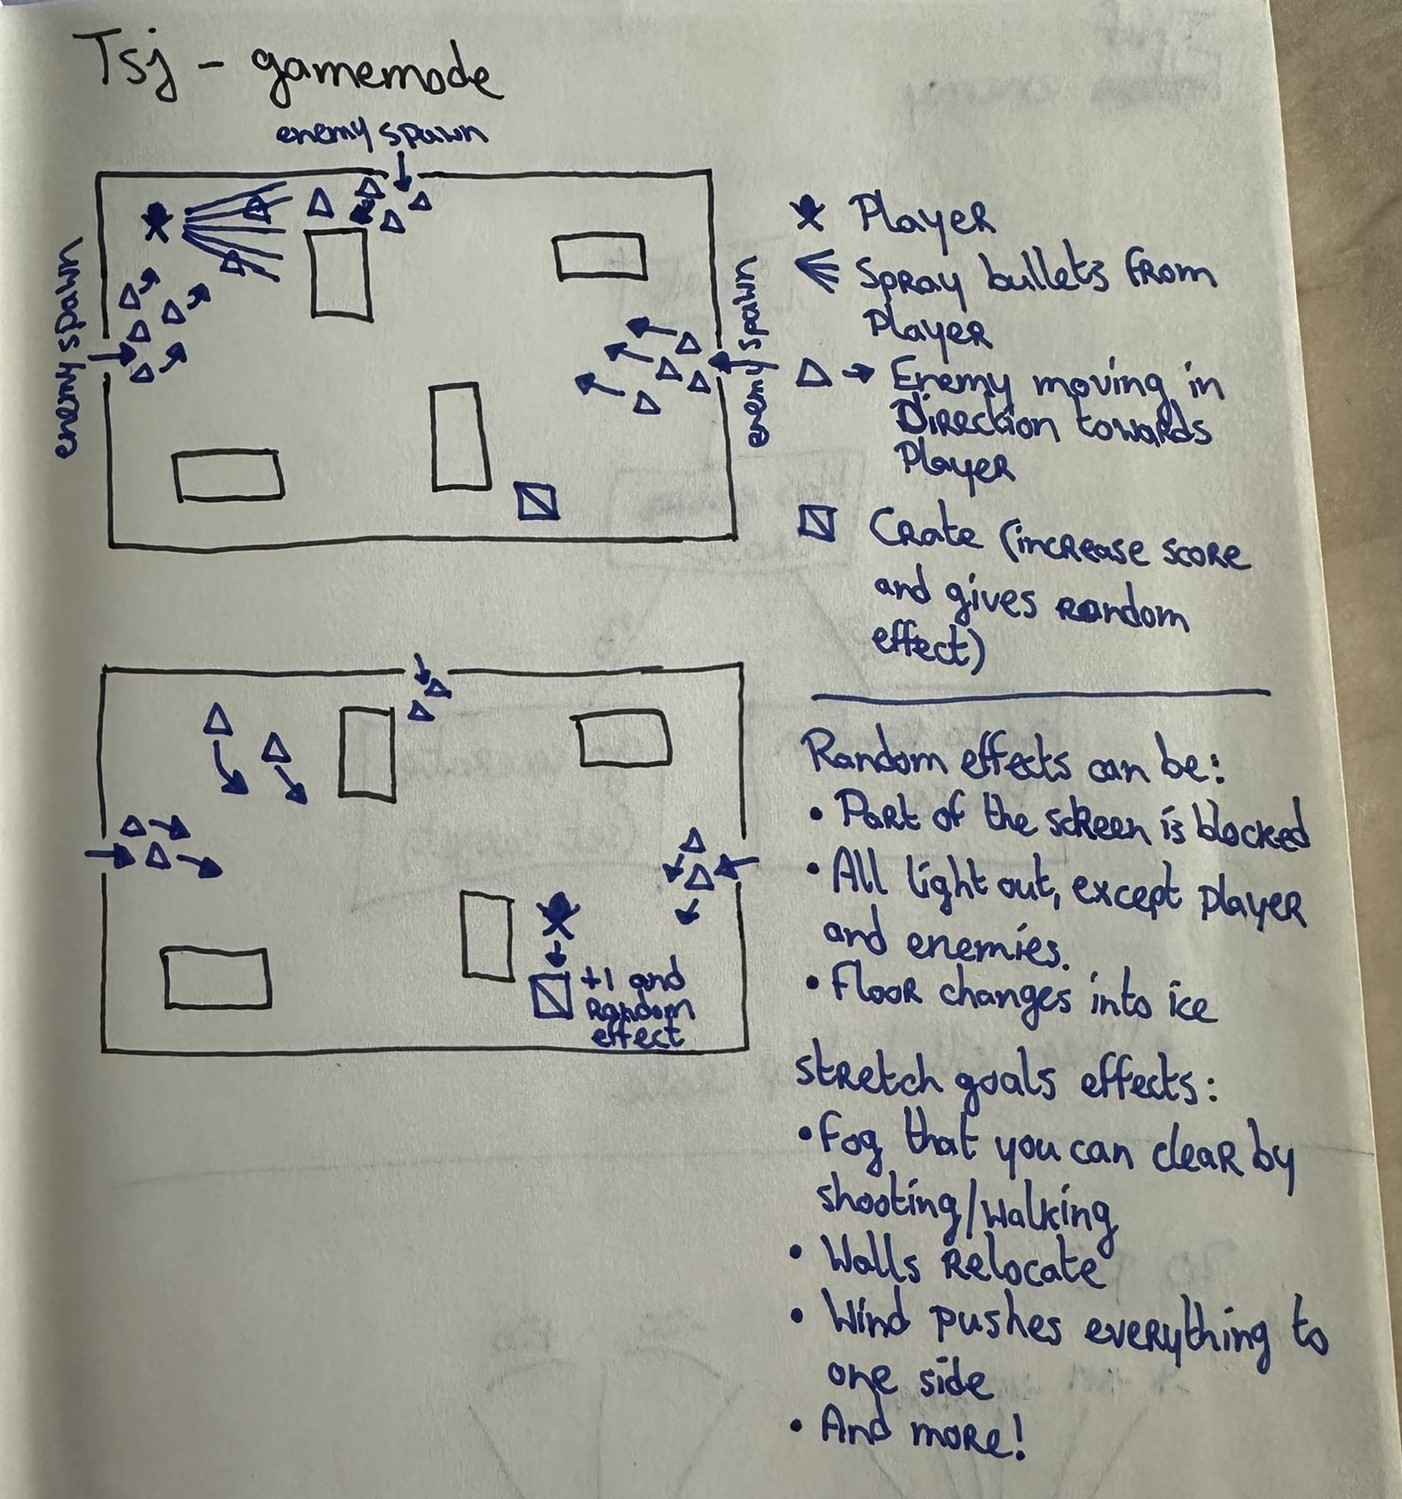 Tsj - gamemode
enemy spawn
enemy spawn
enemy spawn
Player
Spray bullets from
Player
Enemy moving in
Direction towards
Player
Crate (increase score
and gives random
effect)
+1 and
Random
effect
Random effects can be:
• Part of the screen is blocked
• All light out, except player
and enemies.
• Floor changes into ice
Stretch goals effects:
• Fog that you can clear by
shooting/walking
• Walls Relocate
• Wind pushes everything to
one side
• And more!